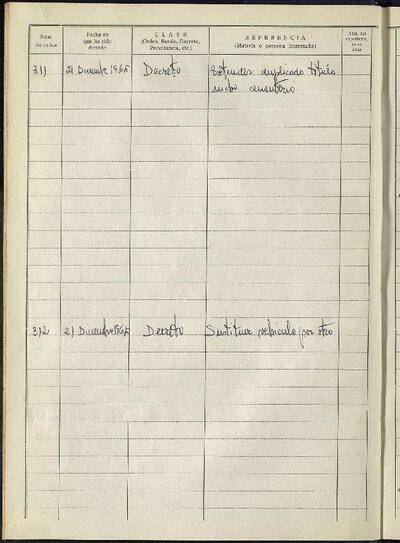 Núm. de orden
Fecha en que ha sido dictado
CLASE
(Orden, Bando, Decreto, Providencia, etc.)
REFERENCIA
(Materia o persona interesada)
Núm. del expediente, en su caso
311 21 Diciembre 1965 Decreto Extender duplicado título
nicho cementerio
312 21 Diciembre 1965 Decreto Sustituir vehículo por otro